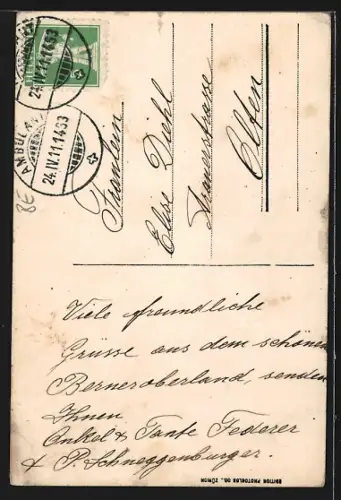 AMBULANT
24.IV.11.1463
AMBULANT
24.IV.11.1463
Fräulein
Elise Diehl
Olten
Viele freundliche
Grüsse aus dem schönen
Berneroberland, senden
Ihnen
Onkel & Tante Federer
& P. Schneggenburger.
EDITION PHOTOGLOB CO., ZÜRICH